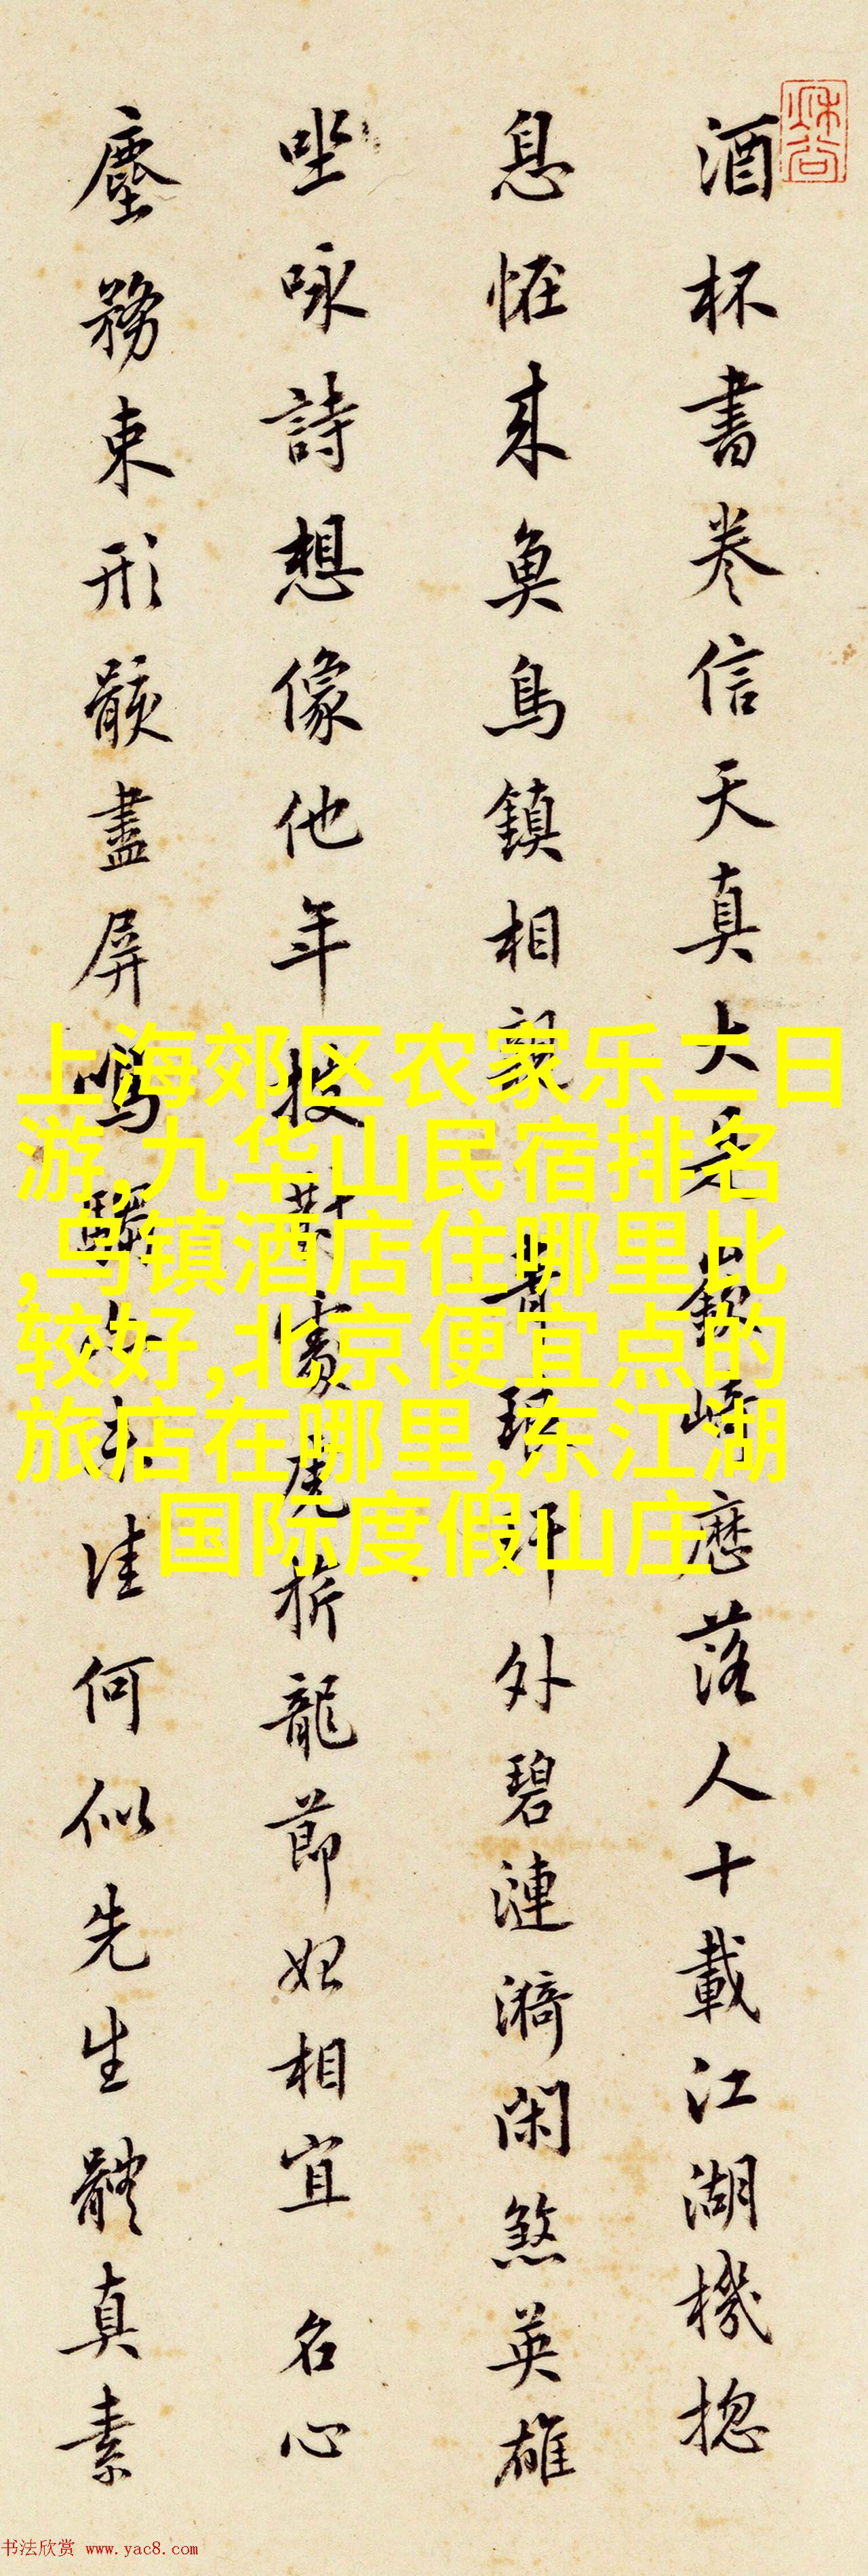 酒杯書卷信天真大嶔崎歷落人十載江湖機揔
息恠来魚鳥鎮相親 青琅玕外碧漣漪閑煞英雄
坐咏詩想像他年虎旂龍節始相宜 名心
塵務束形骸盡屏鳴騶未佳何似先生體真素
上海郊区农家乐二日
游,九华山民宿排名
,乌镇酒店住哪里比
较好,北京便宜点的
旅店在哪里,东江湖
国际度假山庄
书法欣赏 www.yac8.com